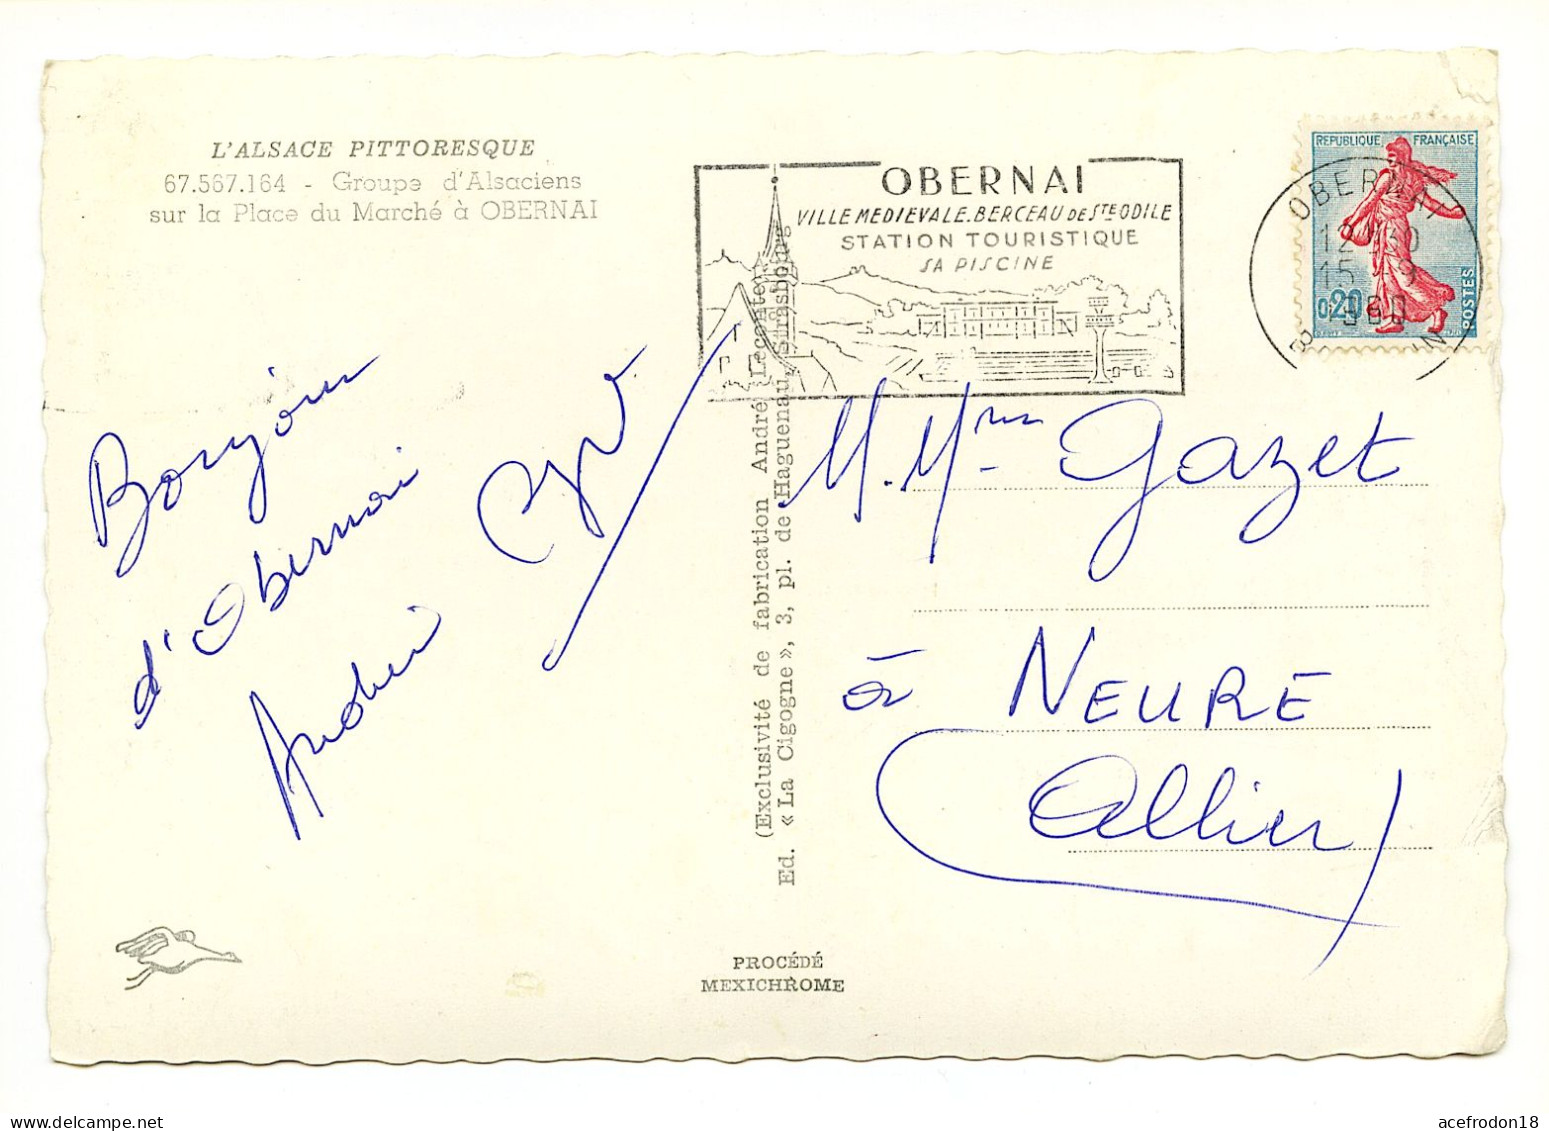 L'ALSACE PITTORESQUE
67.567.164 - Groupe d'Alsaciens
sur la Place du Marché à OBERNAI
OBERNAI
VILLE MEDIEVALE. BERCEAU DE STE ODILE
STATION TOURISTIQUE
SA PISCINE
REPUBLIQUE FRANÇAISE
0.20
POSTES
OBERNAI
12 H 30
15 - 9
1960
BAS RHIN
Bonjour
d'Obernai
M. Mme Gazet
à NEURE
(Allier)
(Exclusivité de fabrication André Leconte)
Ed. « La Cigogne », 3, pl. de Haguenau, Strasbourg
PROCÉDÉ
MEXICHROME
acefrodon18